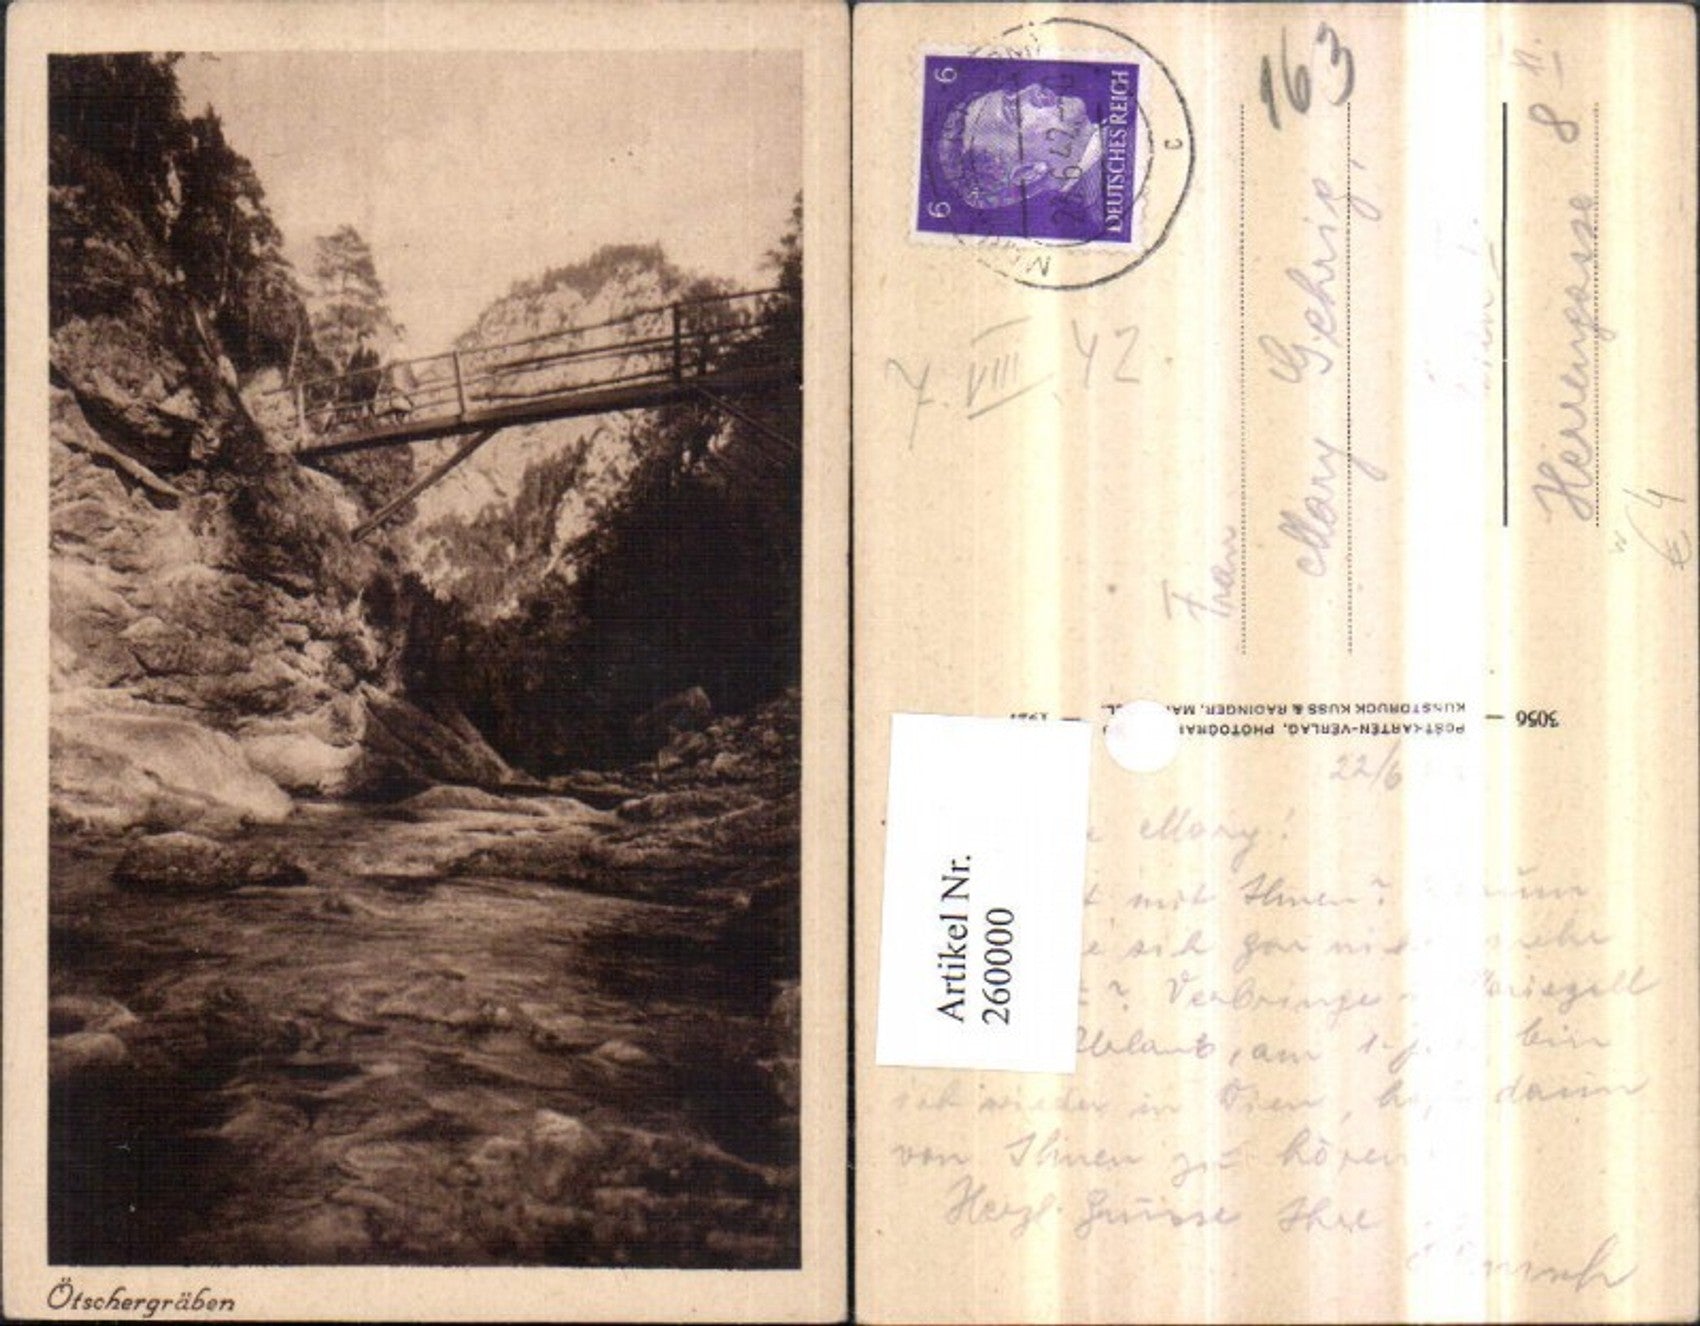 Ötschergräben
6
6
DEUTSCHES REICH
42
c
163
7. VIII. 42.
Frau
Mary Gehrig,
Wien I.
Herrengasse 8
€ 4
3056 —
POSTKARTEN-VERLAG, PHOTOGRA
KUNSTDRUCK KUSS & RADINGER, MA
Artikel Nr.
260000
22/6
Mary!
mit Ihnen?
sich gar mehr
? Verbringe Mariazell
Urlaub, am bin
ich wieder in Wien, dann
von Ihnen zu hören
Herzl. Grüsse Ihre